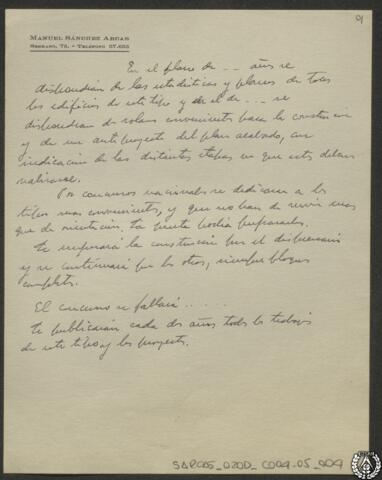 91
MANUEL SÁNCHEZ ARCAS
SERRANO, 75. - TELÉFONO 57.683
En el plazo de -- años se
dispondrían de las estadísticas y planos de todos
los edificios de este tipo y de el de ... se
dispondrían de solares convenientes para la construcción
y de un anteproyecto del plan acabado, con
indicación de las distintas etapas en que estos deban
realizarse.
Por concursos nacionales se dedicaran a los
tipos mas convenientes, y que no han de servir mas
que de orientación. La
Se empezará la construcción por el dispensario
y se continuará por los otros, siempre bloques
completos.
El concurso se fallará .....
Se publicarán cada dos años todos los trabajos
de este tipo y los proyectos.
SARCAS_D20D_C004-05_009